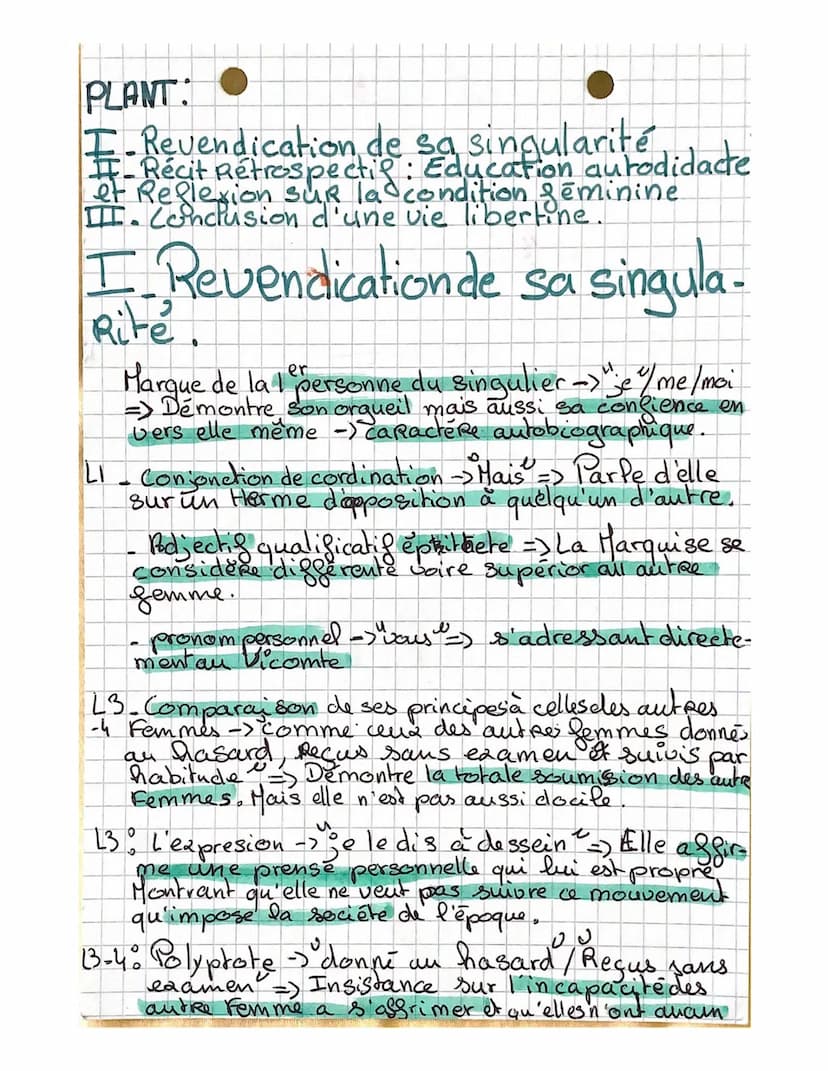 PLANT:
I - Revendication de sa singularité
II - Récit Rétrospectif : Education autodidacte
et Reflexion sur la condition féminine
III. Conclusion d'une vie libertine.
I - Revendication de sa singula-
Rité.
Marque de la 1er personne du singulier -> "je"/me/moi
=> Démontre son orgueil mais aussi sa confience en
vers elle même -> caractére autobiographique.
L1 - Conjonction de cordination -> "Mais" => Parle d'elle
sur un terme d'opposition à quelqu'un d'autre.
- Adjectif qualificatif => La Marquise se
considère différente voire supérior au autre
femme.
- pronom personnel -> "vous" => s'adressant directe-
ment au Vicomte
L3 - Comparaison de ses principes à celles des autres
-4 Femmes -> "comme ceux des autres femmes donnés
au hasard, Reçus sans examen et suivis par
habitude" => Démontre la totale soumision des autre
Femmes. Mais elle n'est pas aussi docile.
L3: L'expresion -> "je le dis à dessein" => Elle affir-
me une prensé personnelle qui lui est propre
Montrant qu'elle ne veut pas suivre ce mouvement
qu'impose la société de l'époque.
L3-4: Polyptote -> "donné au hasard"/"Reçus sans
examen" => Insistance sur l'incapacité des
autre Femme a s'affrimer et qu'elles n'ont aucun